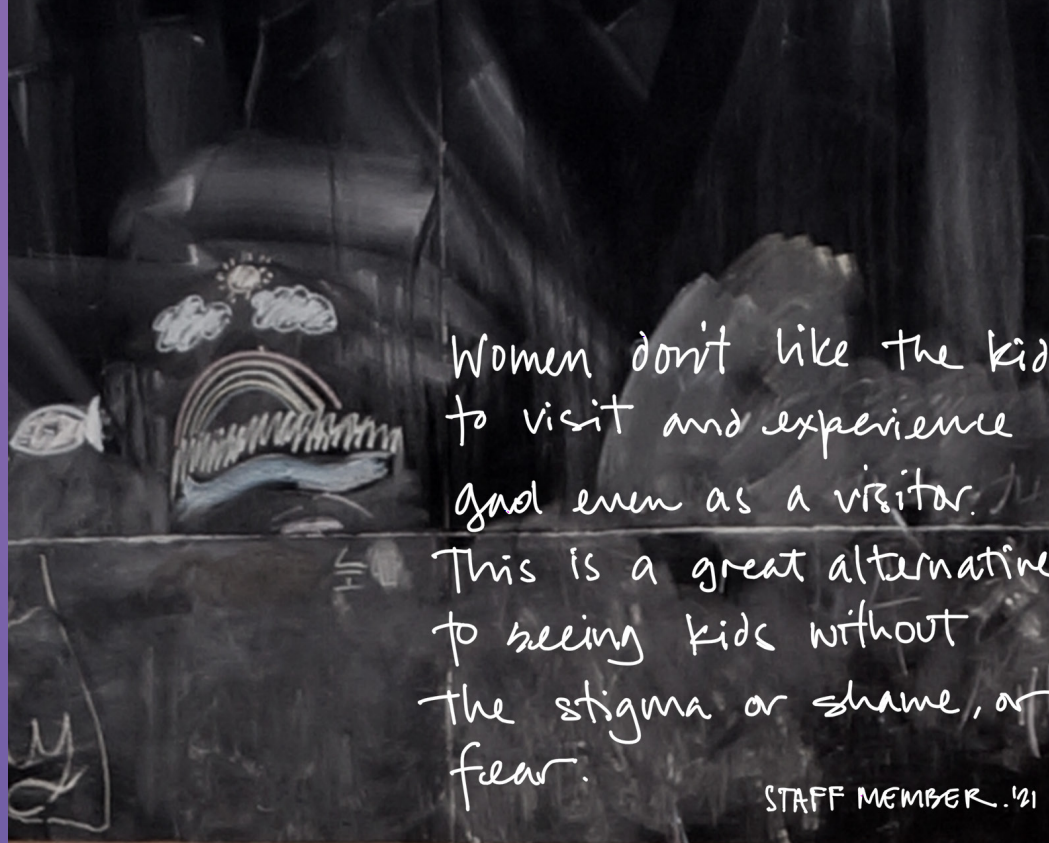 Women don't like the kid
to visit and experience
gaol even as a visitor.
This is a great alternative
to seeing kids without
the stigma or shame, or
fear.
STAFF MEMBER. '21